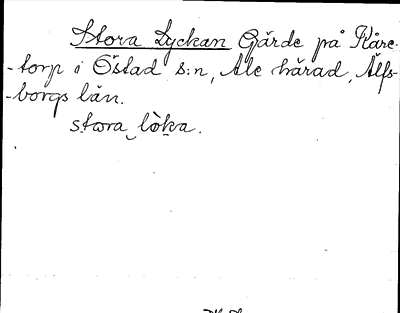 Stora Lyckan Gärde på Kåre-
-torp i Östad s:n, Ale härad, Älfs-
-borgs län.
stora löka.